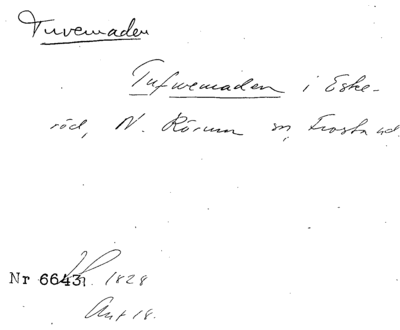 Tuvemaden
Tufwemaden i Eske-
röd, N. Rörum sn, Frosta hd
Nr 66431. 1828
Akt 18.